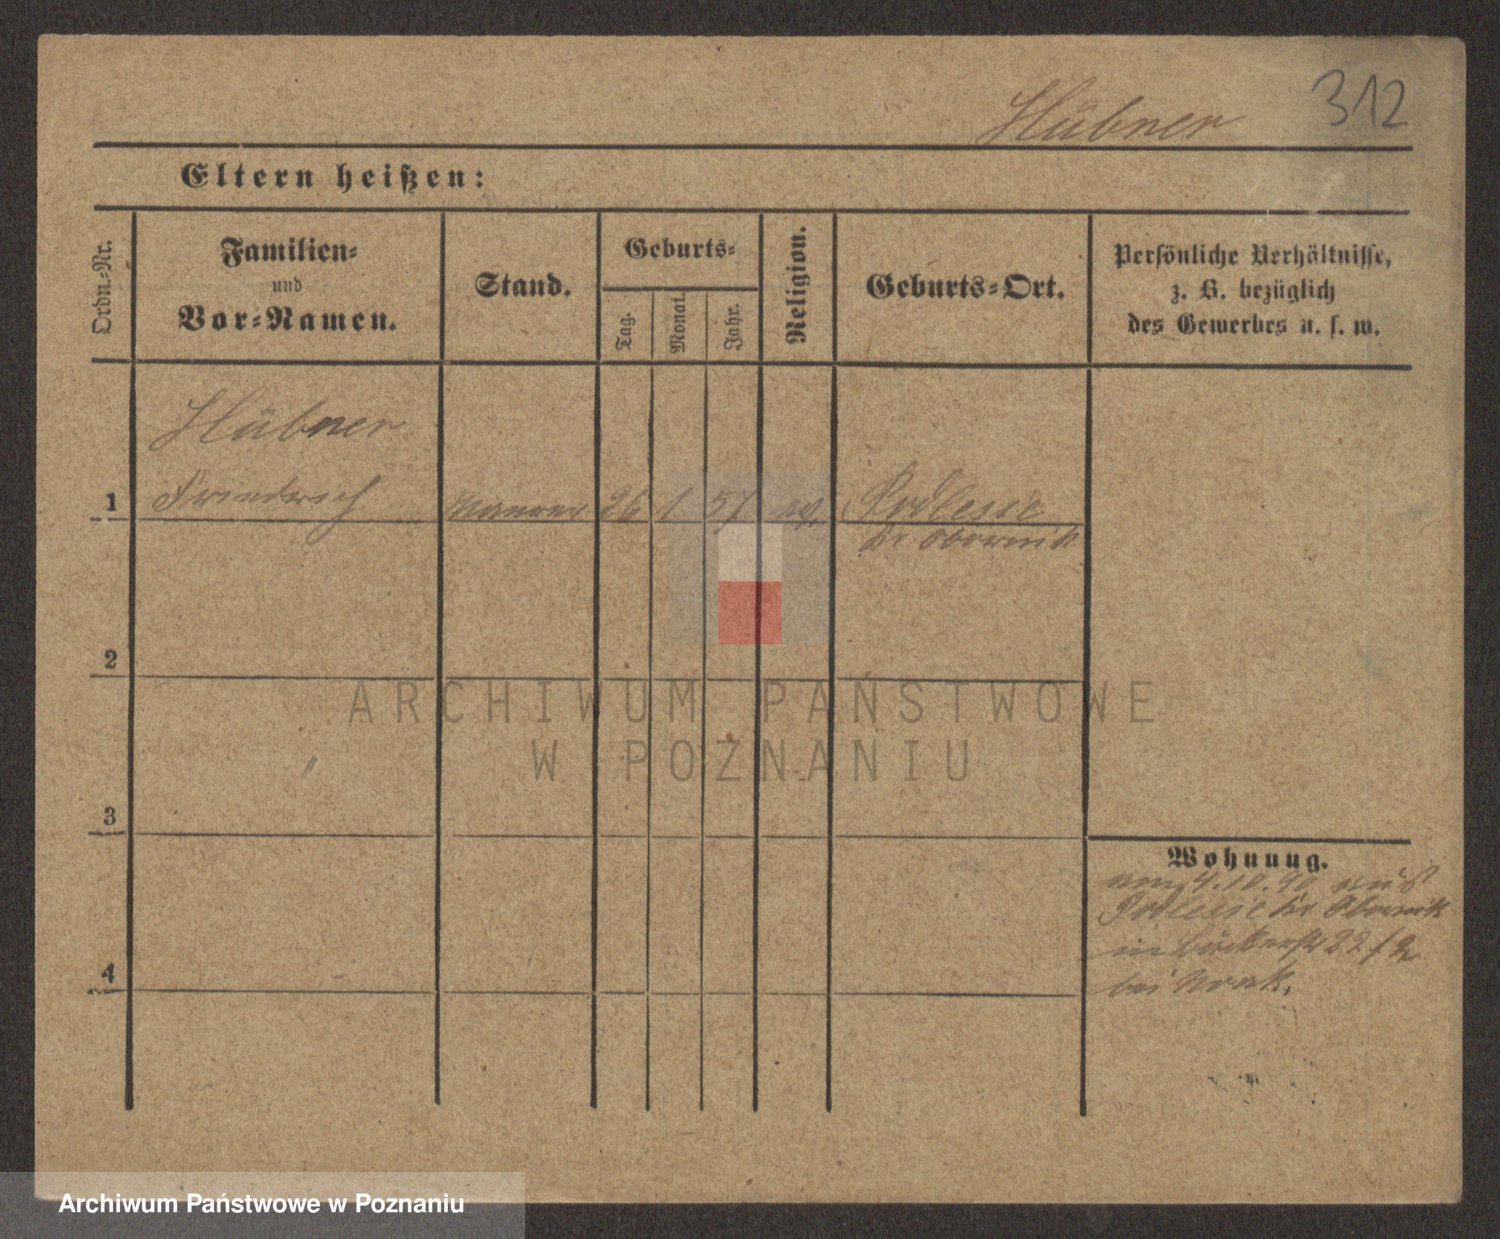 Hübner
312
Eltern heißen:
Ordn.-Nr.
Familien-
und
Vor-Namen.
Stand.
Geburts-
Tag.
Monat.
Jahr.
Religion.
Geburts-Ort.
Persönliche Verhältnisse,
z. B. bezüglich
des Gewerbes u. s. w.
Hübner
1 Friedrich Maurer 26 1 57 ev. Podlesie
Kr Obornik
2
3
4
Wohnung.
am 4.10.90 aus
Podlesie Kr Obornik
in Bäckerstr 22
bei
ARCHIWUM PAŃSTWOWE
W POZNANIU
Archiwum Państwowe w Poznaniu